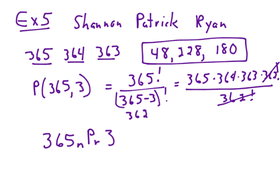 Ex5 Shannon Patrick Ryan
365 364 363 48,228,180
P(365,3) = 365! / (365-3)! = 365·364·363·362! / 362!
362
365 nPr 3